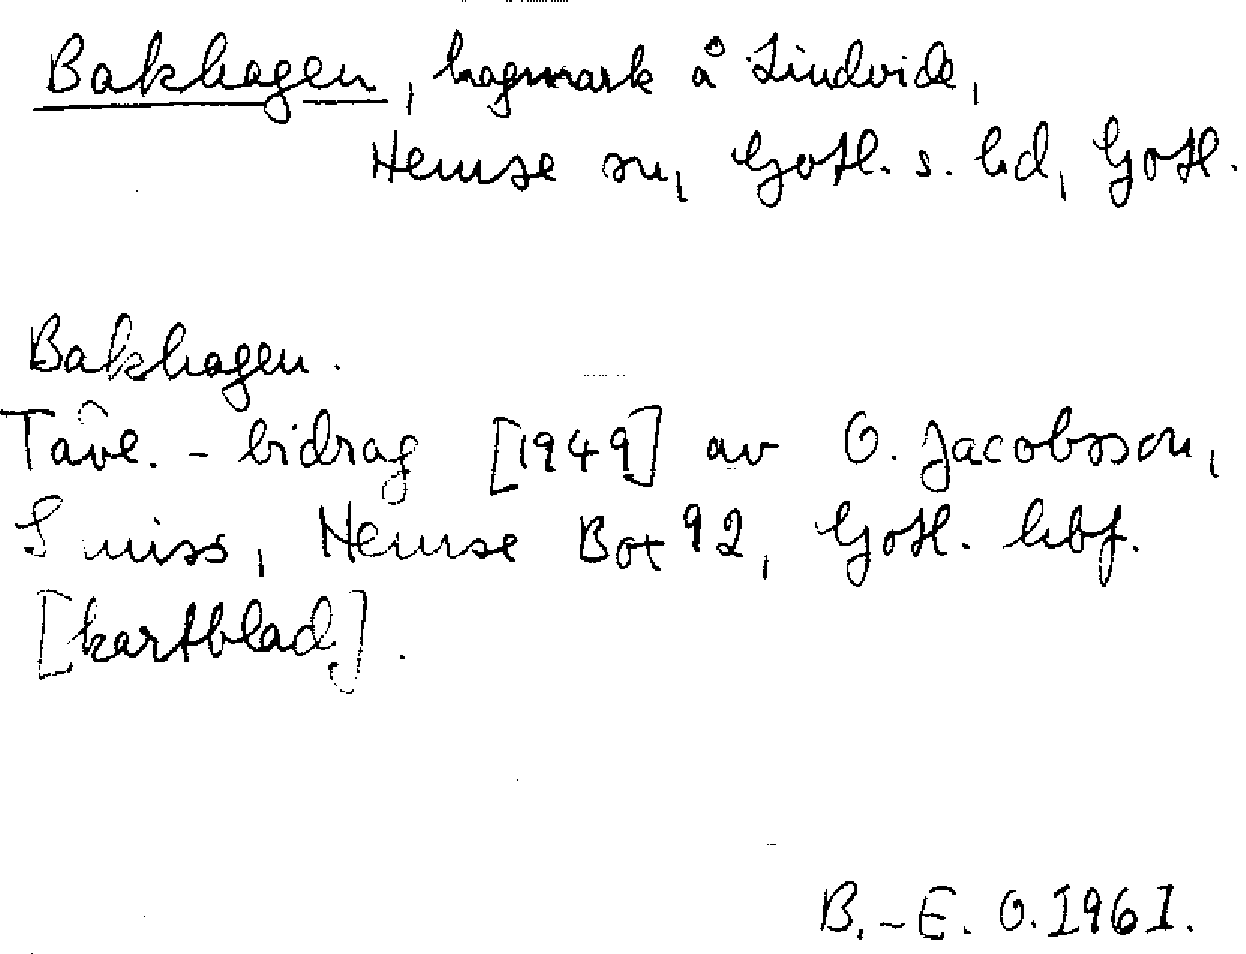 Bakhagen, hagmark å Lindvide,
Hemse sn, Gotl. s. hd, Gotl.
Bakhagen.
Tävl.-bidrag [1949] av O. Jacobsson,
Smiss, Hemse Box 92, Gotl. hbf.
[kartblad].
B.-E. O. 1961.